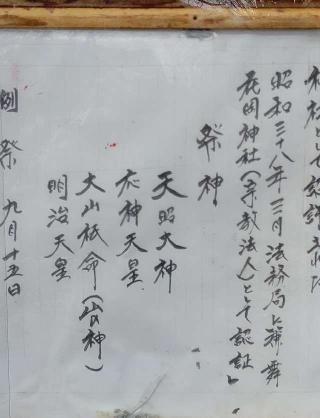 昭和三十八年三月法務局に弾舞
花園神社(宗教法人)として認証。
祭神
天照大神
応神天皇
大山祇命(山の神)
明治天皇
例祭 九月十五日